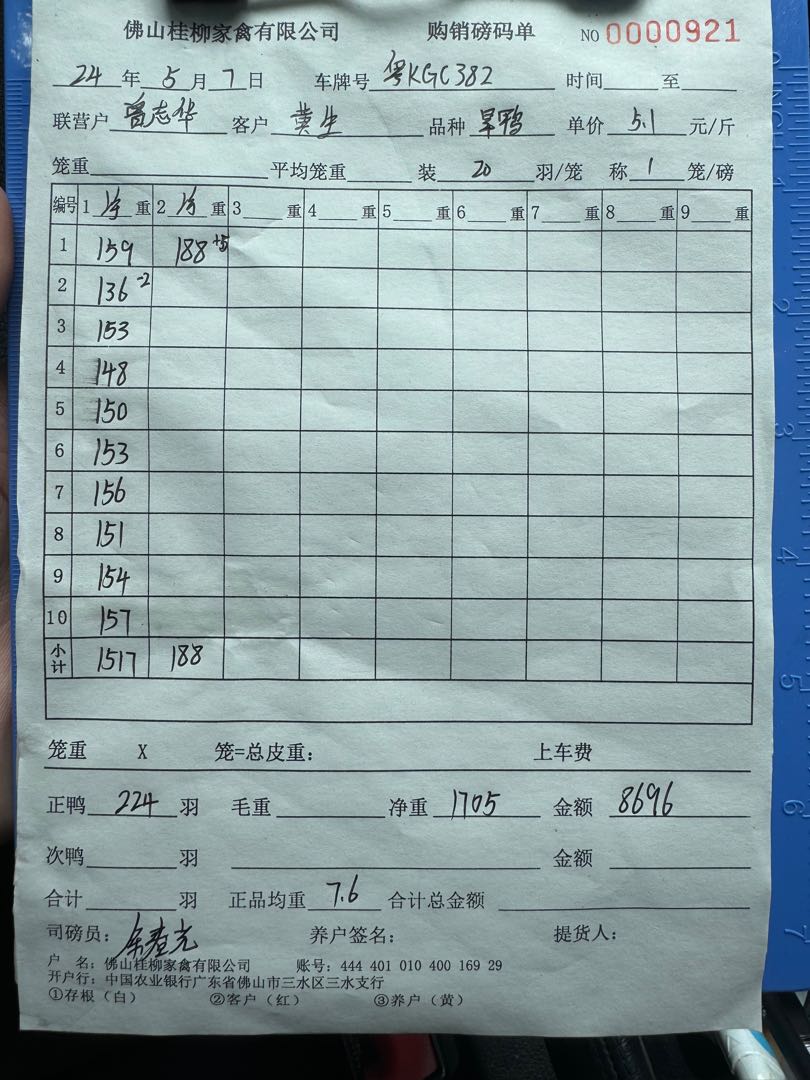 佛山桂柳家禽有限公司 购销磅码单 NO 0000921
24 年 5 月 7 日 车牌号 粤KGC382 时间 至
联营户 曾志华 客户 黄生 品种 旱鸭 单价 5.1 元/斤
笼重 平均笼重 装 20 羽/笼 称 1 笼/磅
编号 1 净 重 2 净 重 3 重 4 重 5 重 6 重 7 重 8 重 9 重
1 159 188 +5
2 136 -2
3 153
4 148
5 150
6 153
7 156
8 151
9 154
10 157
小计 1517 188
笼重 X 笼=总皮重: 上车费
正鸭 224 羽 毛重 净重 1705 金额 8696
次鸭 羽 金额
合计 羽 正品均重 7.6 合计总金额
司磅员: 养户签名: 提货人:
户 名: 佛山桂柳家禽有限公司 账号: 444 401 010 400 169 29
开户行: 中国农业银行广东省佛山市三水区三水支行
①存根(白) ②客户(红) ③养户(黄)
INCH 1 2 3 4 5 6 7